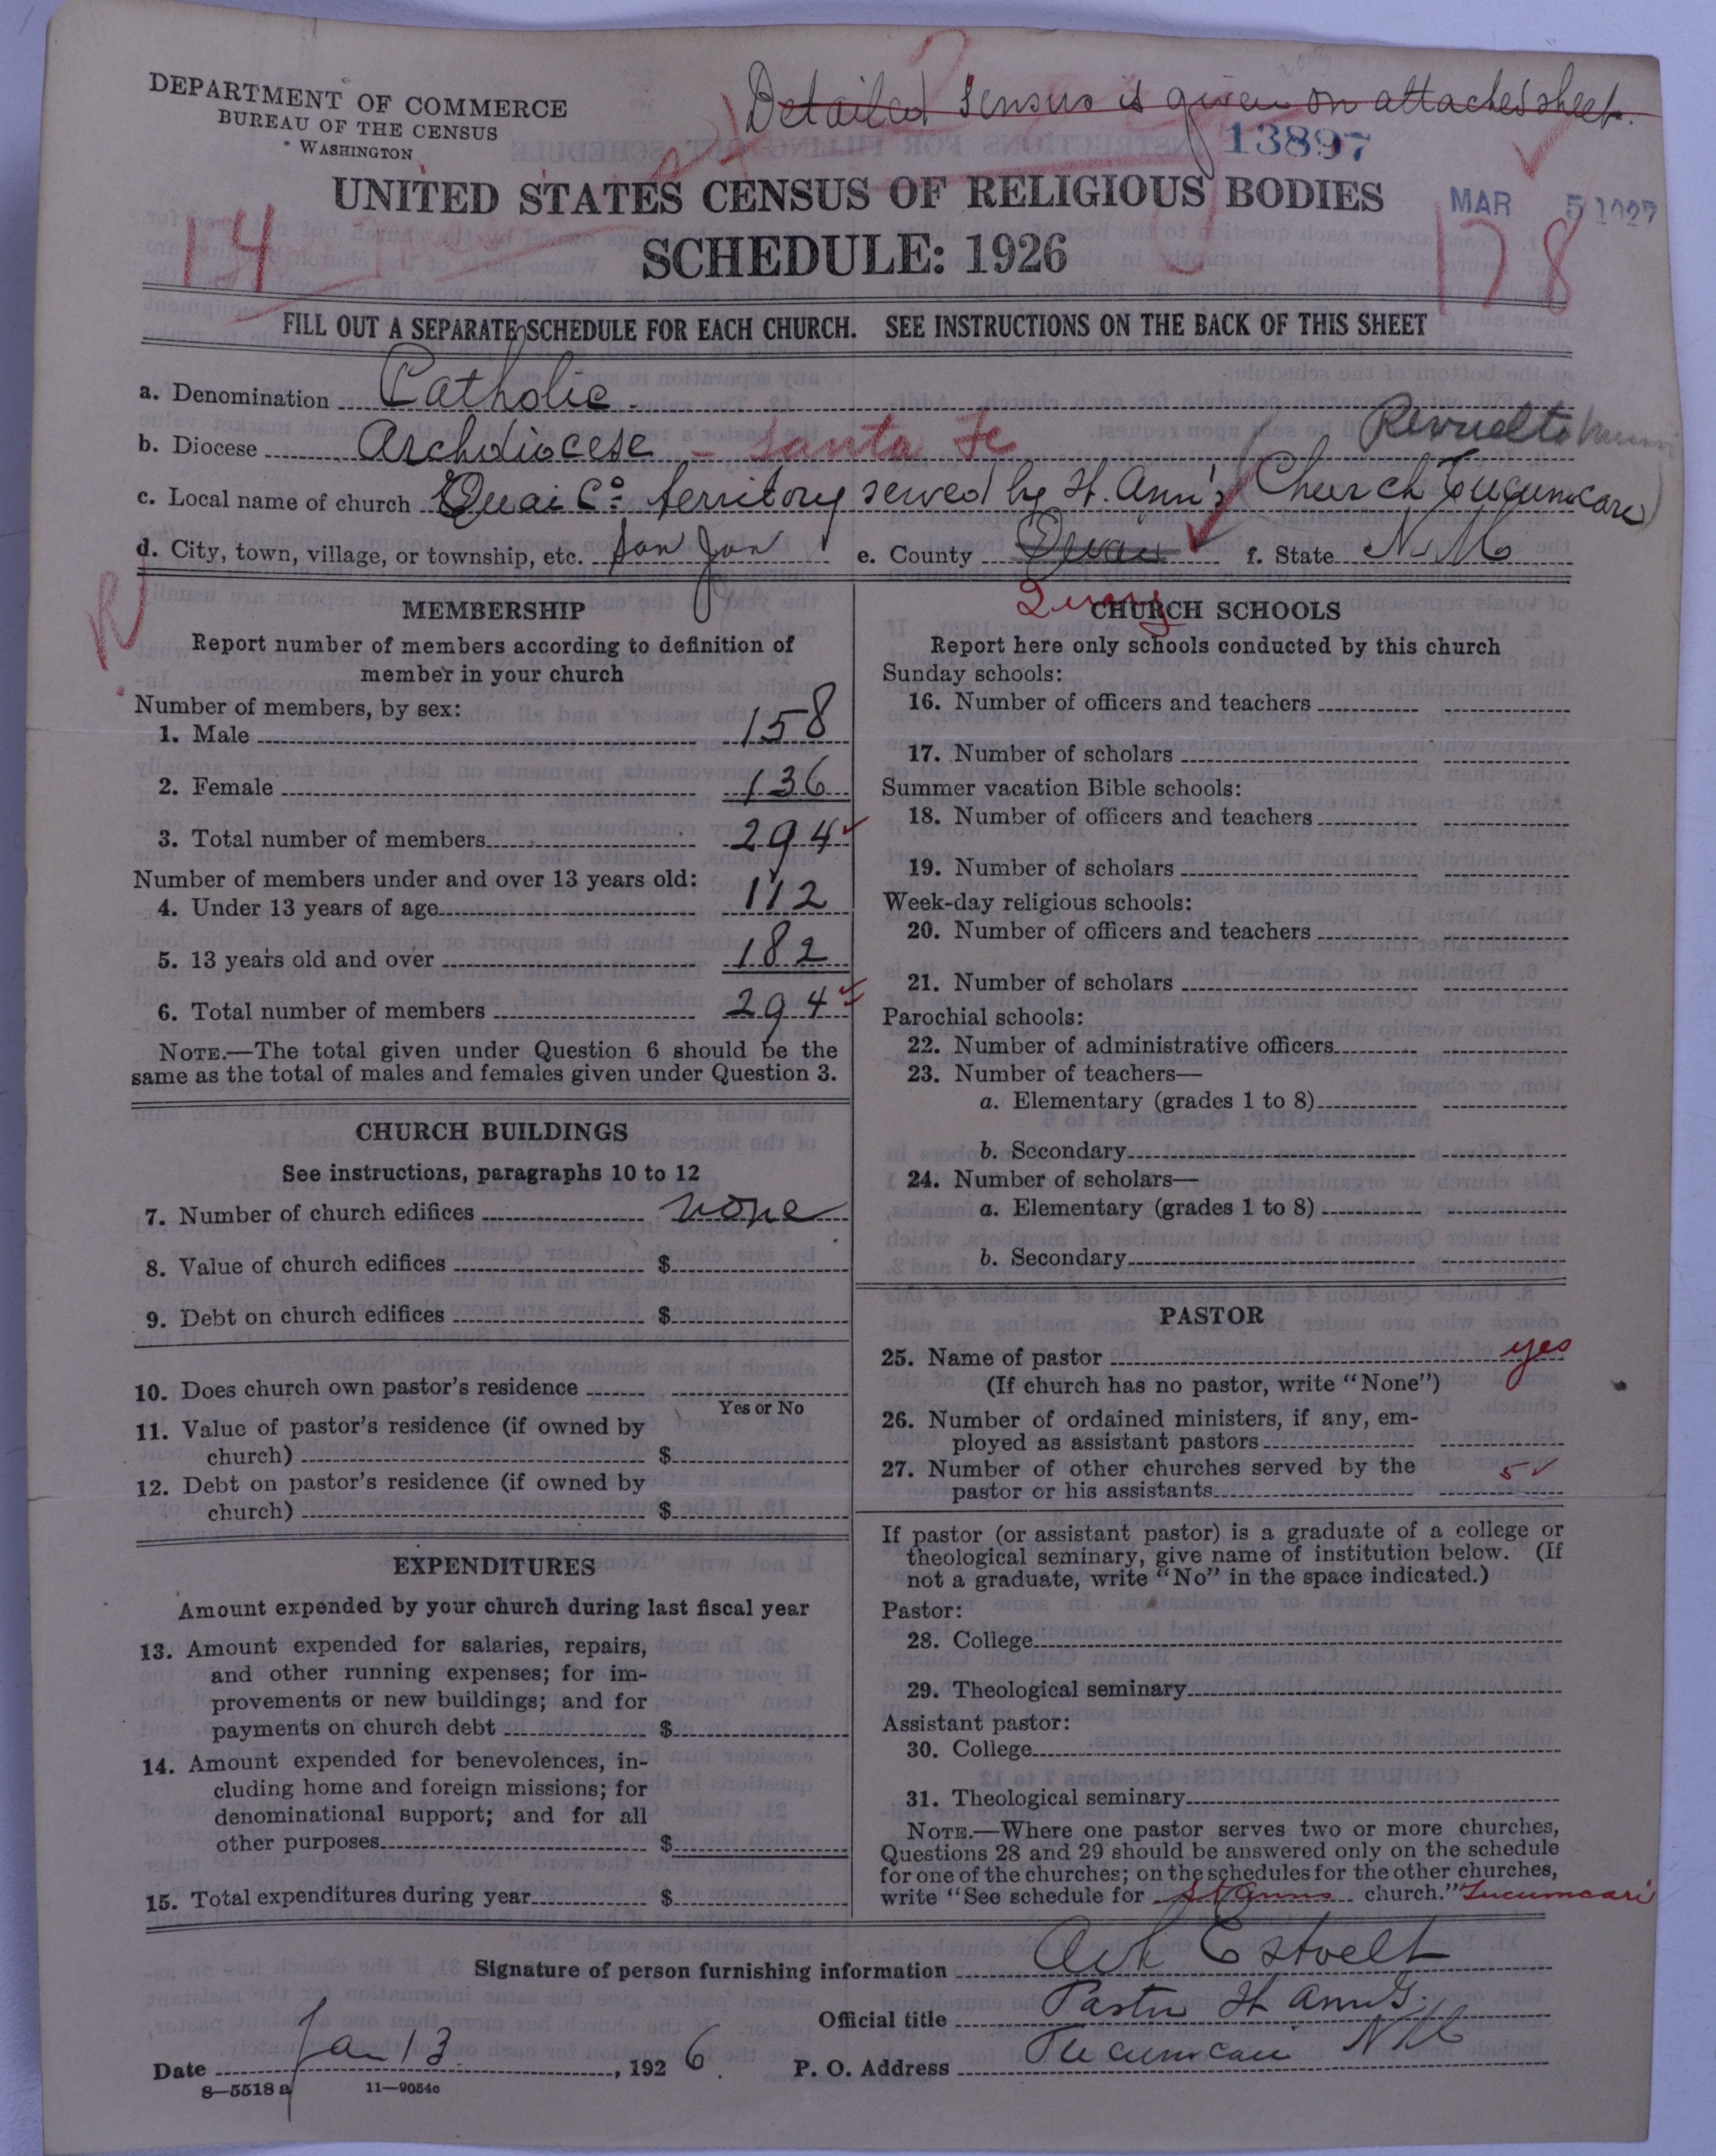 DEPARTMENT OF COMMERCE
BUREAU OF THE CENSUS
WASHINGTON
Detailed sensus is given on attached sheet.
13897
UNITED STATES CENSUS OF RELIGIOUS BODIES
MAR 5 1927
14
SCHEDULE: 1926
178
FILL OUT A SEPARATE SCHEDULE FOR EACH CHURCH. SEE INSTRUCTIONS ON THE BACK OF THIS SHEET
a. Denomination Catholic.
Revuelto
b. Diocese Archdiocese - Santa Fe
c. Local name of church Quai Co. territory served by St. Ann's Church Tucumcari
d. City, town, village, or township, etc. San Jon e. County Quai f. State N.M.
Quay
R
MEMBERSHIP
Report number of members according to definition of
member in your church
Number of members, by sex:
1. Male 158
2. Female 136
3. Total number of members 294
Number of members under and over 13 years old:
4. Under 13 years of age 112
5. 13 years old and over 182
6. Total number of members 294
NOTE.—The total given under Question 6 should be the
same as the total of males and females given under Question 3.
CHURCH BUILDINGS
See instructions, paragraphs 10 to 12
7. Number of church edifices none
8. Value of church edifices $
9. Debt on church edifices $
10. Does church own pastor's residence
Yes or No
11. Value of pastor's residence (if owned by
church) $
12. Debt on pastor's residence (if owned by
church) $
EXPENDITURES
Amount expended by your church during last fiscal year
13. Amount expended for salaries, repairs,
and other running expenses; for im-
provements or new buildings; and for
payments on church debt $
14. Amount expended for benevolences, in-
cluding home and foreign missions; for
denominational support; and for all
other purposes $
15. Total expenditures during year $
CHURCH SCHOOLS
Report here only schools conducted by this church
Sunday schools:
16. Number of officers and teachers
17. Number of scholars
Summer vacation Bible schools:
18. Number of officers and teachers
19. Number of scholars
Week-day religious schools:
20. Number of officers and teachers
21. Number of scholars
Parochial schools:
22. Number of administrative officers
23. Number of teachers—
a. Elementary (grades 1 to 8)
b. Secondary
24. Number of scholars—
a. Elementary (grades 1 to 8)
b. Secondary
PASTOR
25. Name of pastor yes
(If church has no pastor, write "None")
26. Number of ordained ministers, if any, em-
ployed as assistant pastors
27. Number of other churches served by the 5
pastor or his assistants
If pastor (or assistant pastor) is a graduate of a college or
theological seminary, give name of institution below. (If
not a graduate, write "No" in the space indicated.)
Pastor:
28. College
29. Theological seminary
Assistant pastor:
30. College
31. Theological seminary
NOTE.—Where one pastor serves two or more churches,
Questions 28 and 29 should be answered only on the schedule
for one of the churches; on the schedules for the other churches,
write "See schedule for St Anns church." Tucumcari
Signature of person furnishing information
Official title Pastor St Ann's.
Date Jan 13, 1926. P. O. Address Tucumcari NM
8—5518 a 11—9054c